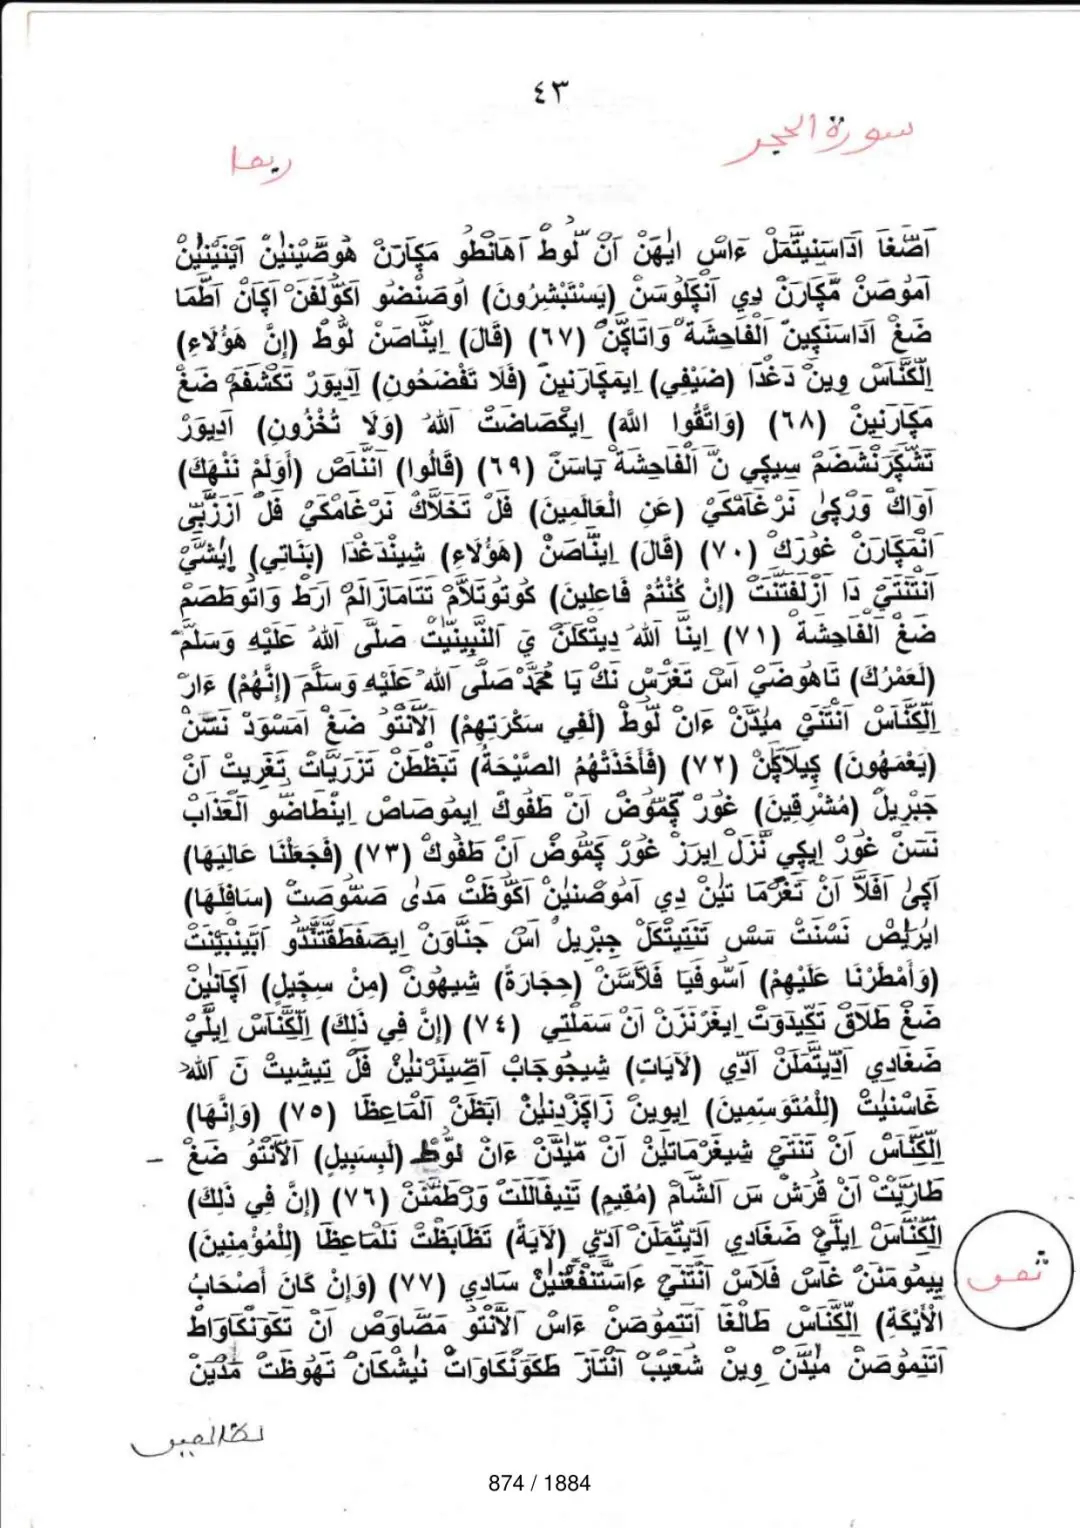 ٤٣
سورة الحجر
ربما
اَصَّغَا اَدَاسَنِيتَّمَلْ ءَاسْ اِيٰهَنْ اَنْ لُوطْ اَهَانْطُو مَكَارَنْ هُوصَّيْنِينْ اَيْنَيْنِينْ
اَمُوصَنْ مَّكَارَنْ دِي اَنْكَلُوسَنْ (يَسْتَبْشِرُونَ) اُوصَنْضُو اَكْوَلَفَنْ اَكَانْ اَطَّمَا
ضَغْ اَدَاسَنَكِينْ الْفَاحِشَةْ وَاتَاكَنْ (٦٧) (قَالَ) اِينَّاصَنْ لُوطْ (إِنَّ هَؤُلَاءِ)
اِلْكَنَّاسْ وِينْ دَغْدَا (ضَيْفِي) اِيمَكَارَنِينْ (فَلَا تَفْضَحُونِ) اَدِيوَرْ تَكْشَفَمْ ضَغْ
مَكَارَنِينْ (٦٨) (وَاتَّقُوا اللَّهَ) اِيكْصَاضَتْ اللهُ (وَلَا تُخْزُونِ) اَدِيوَرْ
تَشَّكَرْشَضَمْ سِيكِي نَّ الْفَاحِشَةْ يَاسَنْ (٦٩) (قَالُوا) اَنَّاصْ (أَوَلَمْ نَنْهَكَ)
اَوَاكْ وَرْكَىٰ نَرْغَامْكَيْ (عَنِ الْعَالَمِينَ) فَلْ تَخَلَّاكْ نَرْغَامْكَيْ فَلْ اَزَزَّبَّى
اَنْمَكَارَنْ غُورَكْ (٧٠) (قَالَ) اِينَّاصَنْ (هَؤُلَاءِ) شِينْدَغْدَا (بَنَاتِي) اِيْشَّيْ
اَنْتَنَتَيْ دَا اَزْلَفْتَنَتْ (إِنْ كُنْتُمْ فَاعِلِينَ) كُوتُوتَلَّامْ تَتَامَازَالَمْ اَرَطْ وَاتُوطَصَمْ
ضَغْ الْفَاحِشَةْ (٧١) اِينَّا اللهُ دِيتَكَلَنْ يَ النَّبِيْنِيتْ صَلَّى اللهُ عَلَيْهِ وَسَلَّمَ
(لَعَمْرُكَ) تَاهُوضَيْ اَسْ تَغْرَسْ نَكْ يَا مُحَمَّدْ صَلَّى اللهُ عَلَيْهِ وَسَلَّمَ (إِنَّهُمْ) ءَارْ
اِلْكَنَّاسْ اَنْتَنَيْ مِيْدَّنْ ءَانْ لُوطْ (لَفِي سَكْرَتِهِمْ) اَلَّانْتُو ضَغْ اَمْسَوَدْ نَسَنْ
(يَعْمَهُونَ) كِيلَاكَنْ (٧٢) (فَأَخَذَتْهُمُ الصَّيْحَةُ) تَبَظْطَنْ تَزَرَيَاتْ تَغَرِيتْ اَنْ
جَبْرِيلْ (مُشْرِقِينَ) غُورْ كَمُّوضْ اَنْ طَفُوكْ اِيمُوصَاصْ اِينْطَاضُو الْعَذَابْ
نَسَنْ غُورْ اِيكِي نَّزَلْ اِيرَزْ غُورْ كَمُّوضْ اَنْ طَفُوكْ (٧٣) (فَجَعَلْنَا عَالِيَهَا)
اَكَىٰ اَفَلَّا اَنْ تَغَرْمَا تَيْنْ دِي اَمُوصْنِينْ اَكَوْظَتْ مَدَىٰ صَمُّوصَتْ (سَافِلَهَا)
اِيرِيْصْ نَسْنَتْ سَسْ تَنَتِيتَكَلْ جِبْرِيلْ اَسْ جَنَّاوَنْ اِيصَفَطَقْتَنَدُو اَبَيْنَبَيْنَتْ
(وَأَمْطَرْنَا عَلَيْهِمْ) اَسُّوفَيَا فَلَّاسَنْ (حِجَارَةً) شِيهُونْ (مِنْ سِجِّيلٍ) اَكَانِينْ
ضَغْ طَلَاقْ تَكِيدَوَتْ اِيغَرْنَزَنْ اَنْ سَمَلْتِي (٧٤) (إِنَّ فِي ذَلِكَ) اِلْكَنَّاسْ اِيلَّيْ
ضَغَادِي اَدِّيتَمَلَنْ اَدِّي (لَآيَاتٍ) شِيجُوجَابْ اَصَّيْنَزْنِينْ فَلْ تِيشِيتْ نَ اللهْ
غَاسْنِيتْ (لِلْمُتَوَسِّمِينَ) اِيوِينْ زَاكَزْدَنِينْ اَبَظَنْ الْمَاعِظَا (٧٥) (وَإِنَّهَا)
اِلْكَنَّاسْ اَنْ تَنَتَيْ شِيغَرْمَاتِينْ اَنْ مِّيْدَّنْ ءَانْ لُوطْ (لَبِسَبِيلٍ) اَلَّانْتُو ضَغْ
طَارَيْتْ اَنْ قُرَيْشْ سَ الشَّامْ (مُقِيمٍ) تَنِيفَاللَتْ وَرْطَمَّنَنْ (٧٦) (إِنَّ فِي ذَلِكَ)
اِلْكَنَّاسْ اِيلَّيْ ضَغَادِي اَدِّيتَمَلَنْ اَدِّي (لَآيَةً) تَظَابَظْتْ نَلْمَاعِظَا (لِلْمُؤْمِنِينَ)
يِيمُومَنَنْ غَاسْ فَلَاسْ اَنْتَنَيْ ءَاسَتَنْفَعْنِينْ سَادِي (٧٧) (وَإِنْ كَانَ أَصْحَابُ
الْأَيْكَةِ) اِلْكَنَّاسْ طَالْغَا اَتَتِمُوصَنْ ءَاسْ اَلَّانْتُو مَصَّاوَصْ اَنْ تَكَوْنَكَاوَاطْ
اَتَتِمُوصَنْ مِيْدَّنْ وِينْ شُعَيْبْ اَنْتَازْ طَكَوْنَكَاوَاتْ نَيْشَكَانْ تَهُوظَتْ مَدْيَنْ
874 / 1884